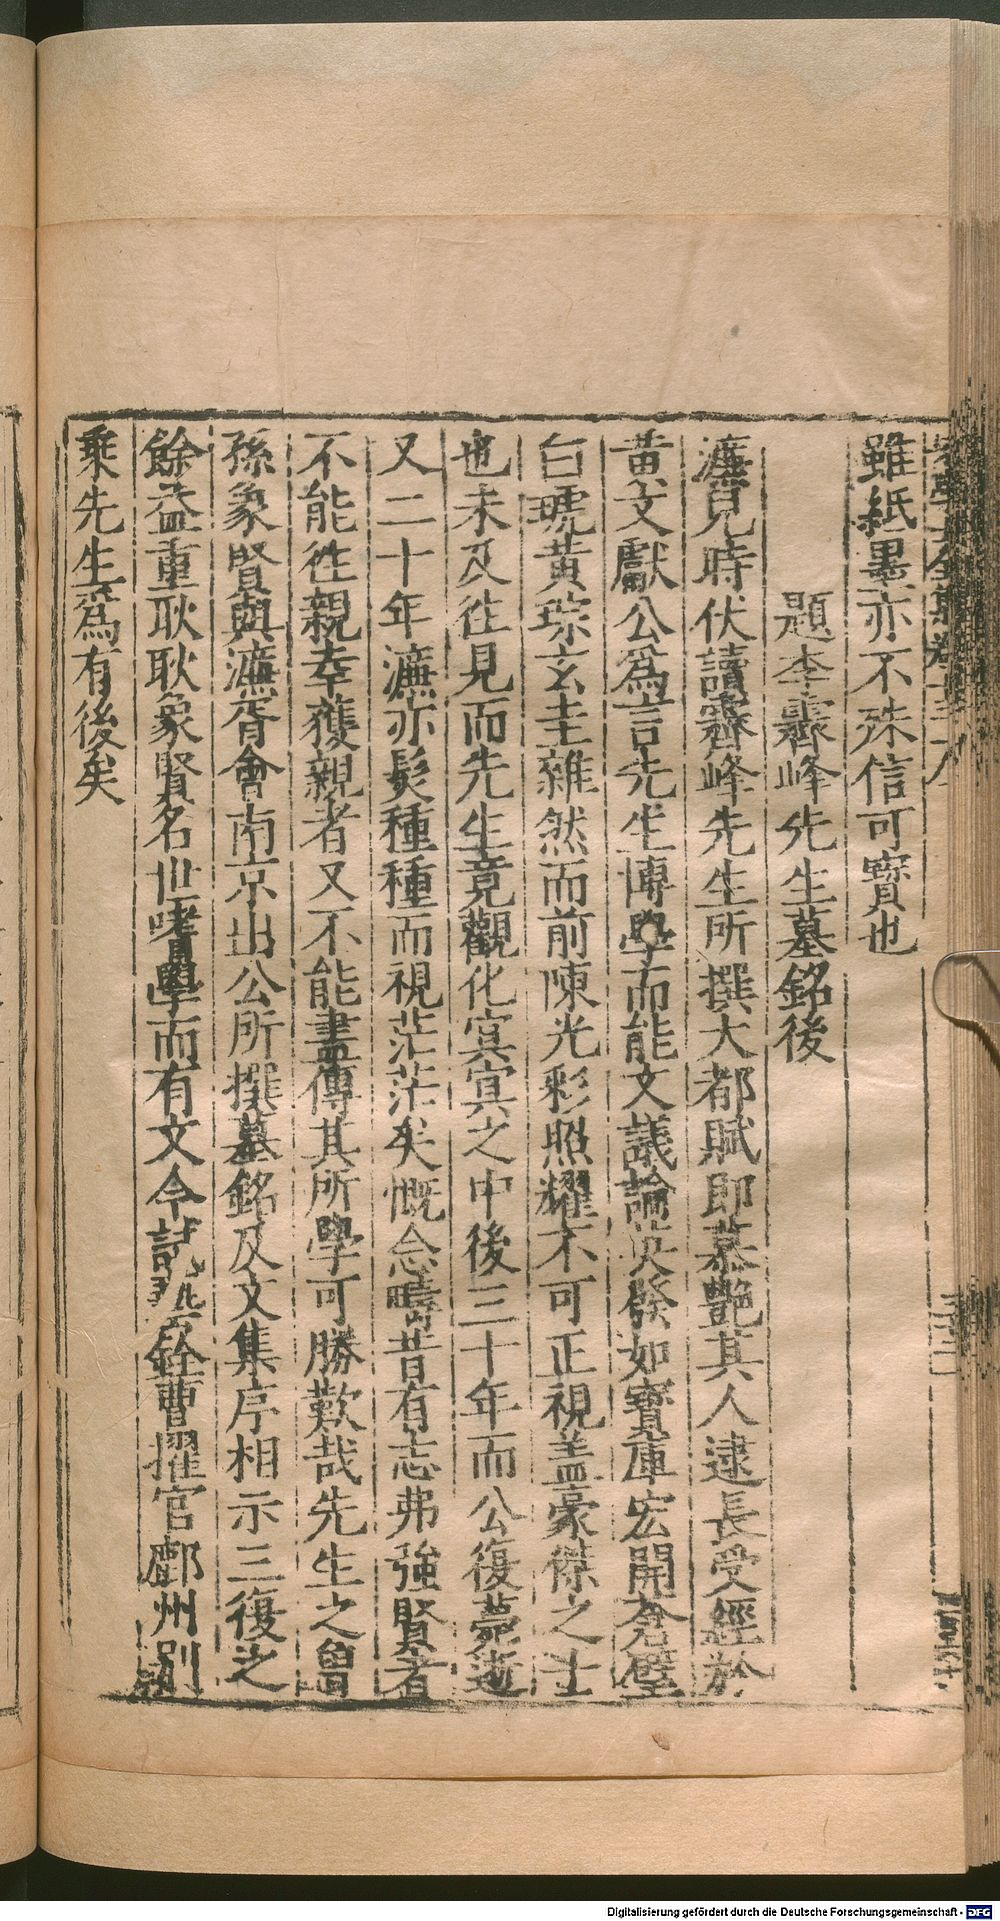 雖紙墨亦不殊信可寳也
題李霽峰先生墓銘後
濂兒時伏讀霽峰先生所撰大都賦即慕艶其人逮長受經於
黄文獻公爲言先生博學而能文議論英發如寳庫宏開蒼璧
白琥黄琮玄圭雜然而前陳光彩照耀不可正視盖豪傑之士
也未及往見而先生竟觀化㝠㝠之中後三十年而公復薨逝
又二十年濂亦髮種種而視茫茫矣慨念疇昔有志弗強賢者
不能徃親幸獲親者又不能盡傳其所學可勝歎哉先生之曽
孫象賢與濂胥會南京出公所撰墓銘及文集序相示三復之
餘益重耿耿象賢名世嗜學而有文今試藝銓曹擢官鄜州别
乗先生爲有後矣
Digitalisierung gefördert durch die Deutsche Forschungsgemeinschaft - DFG